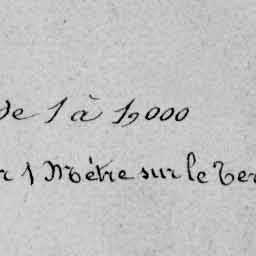 de 1 à 1,000
r 1 Mètre sur le Ter